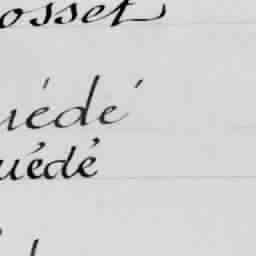 osset
uédé
uédé